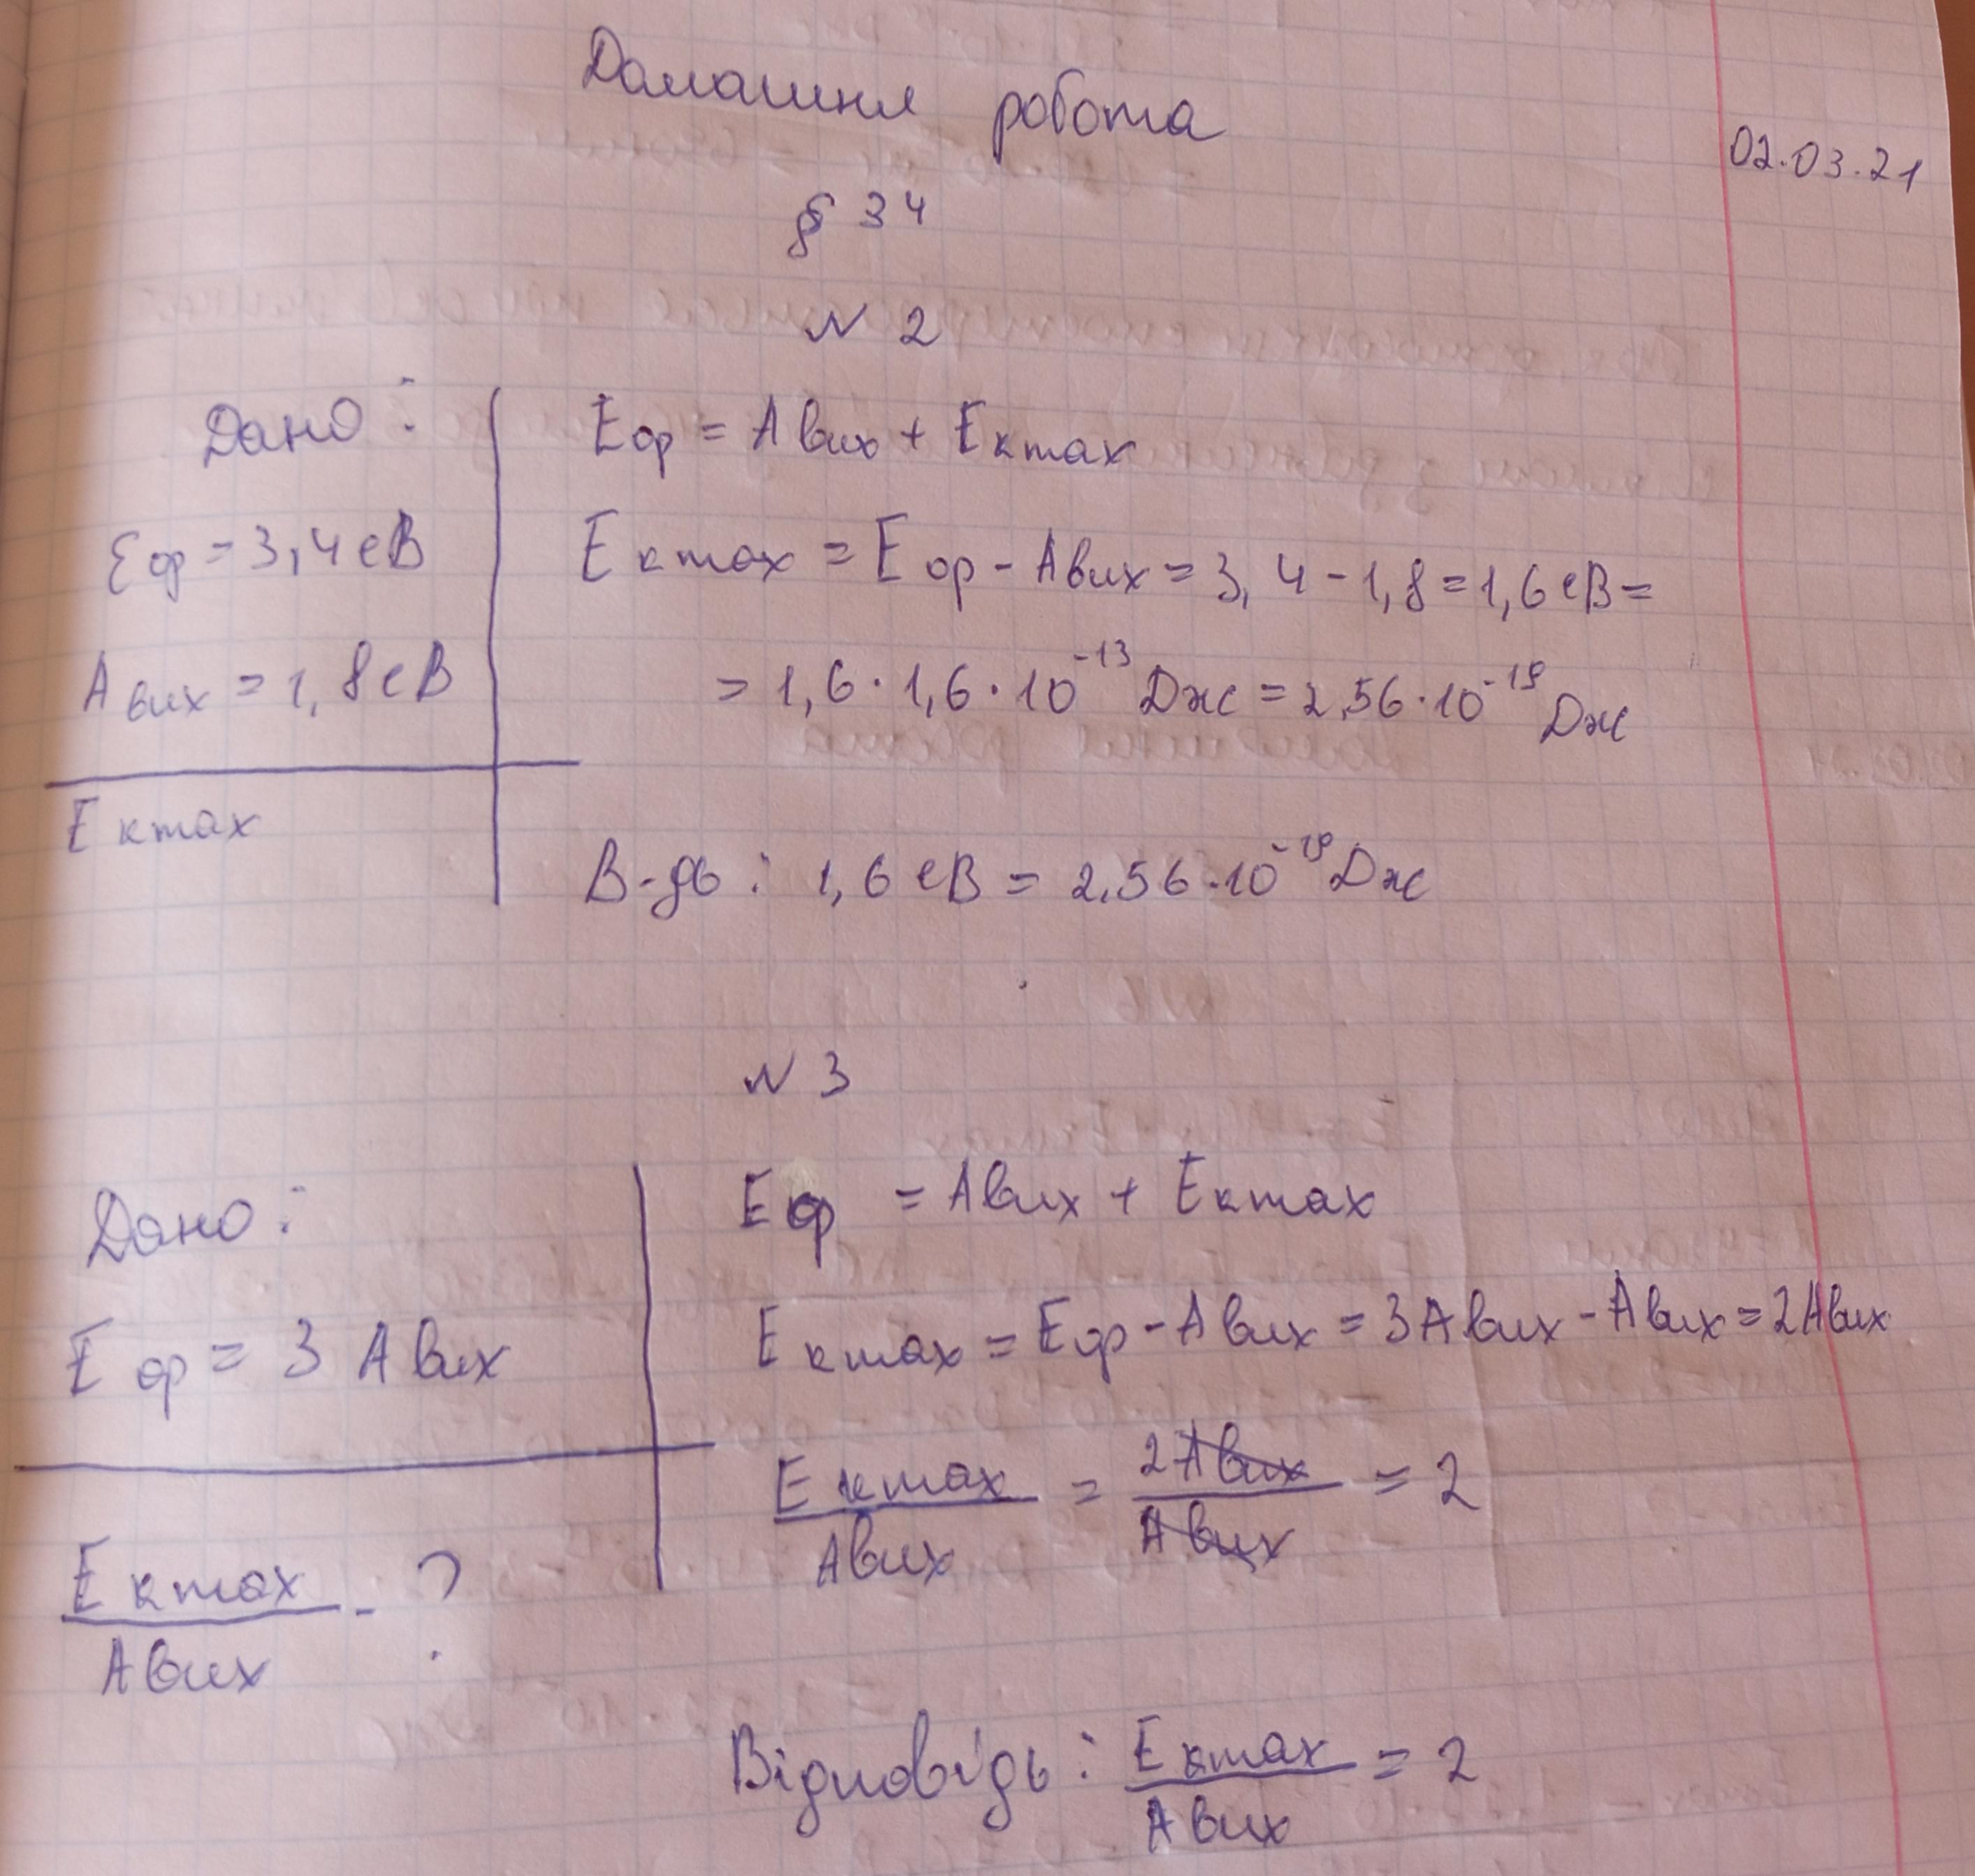 Домашня робота
02.03.21
§ 34
N 2
Дано:
Eф = 3,4 еВ
Aвих = 1,8 еВ
Eкmax
Eф = Aвих + Eкmax
Eкmax = Eф - Aвих = 3,4 - 1,8 = 1,6 еВ =
= 1,6 · 1,6 · 10⁻¹³ Дж = 2,56 · 10⁻¹⁹ Дж
В-дь: 1,6 еВ = 2,56 · 10⁻¹⁹ Дж
N 3
Дано:
Eф = 3 Aвих
Eкmax / Aвих - ?
Eф = Aвих + Eкmax
Eкmax = Eф - Aвих = 3Aвих - Aвих = 2Aвих
Eкmax / Aвих = 2Aвих / Aвих = 2
Відповідь: Eкmax / Aвих = 2